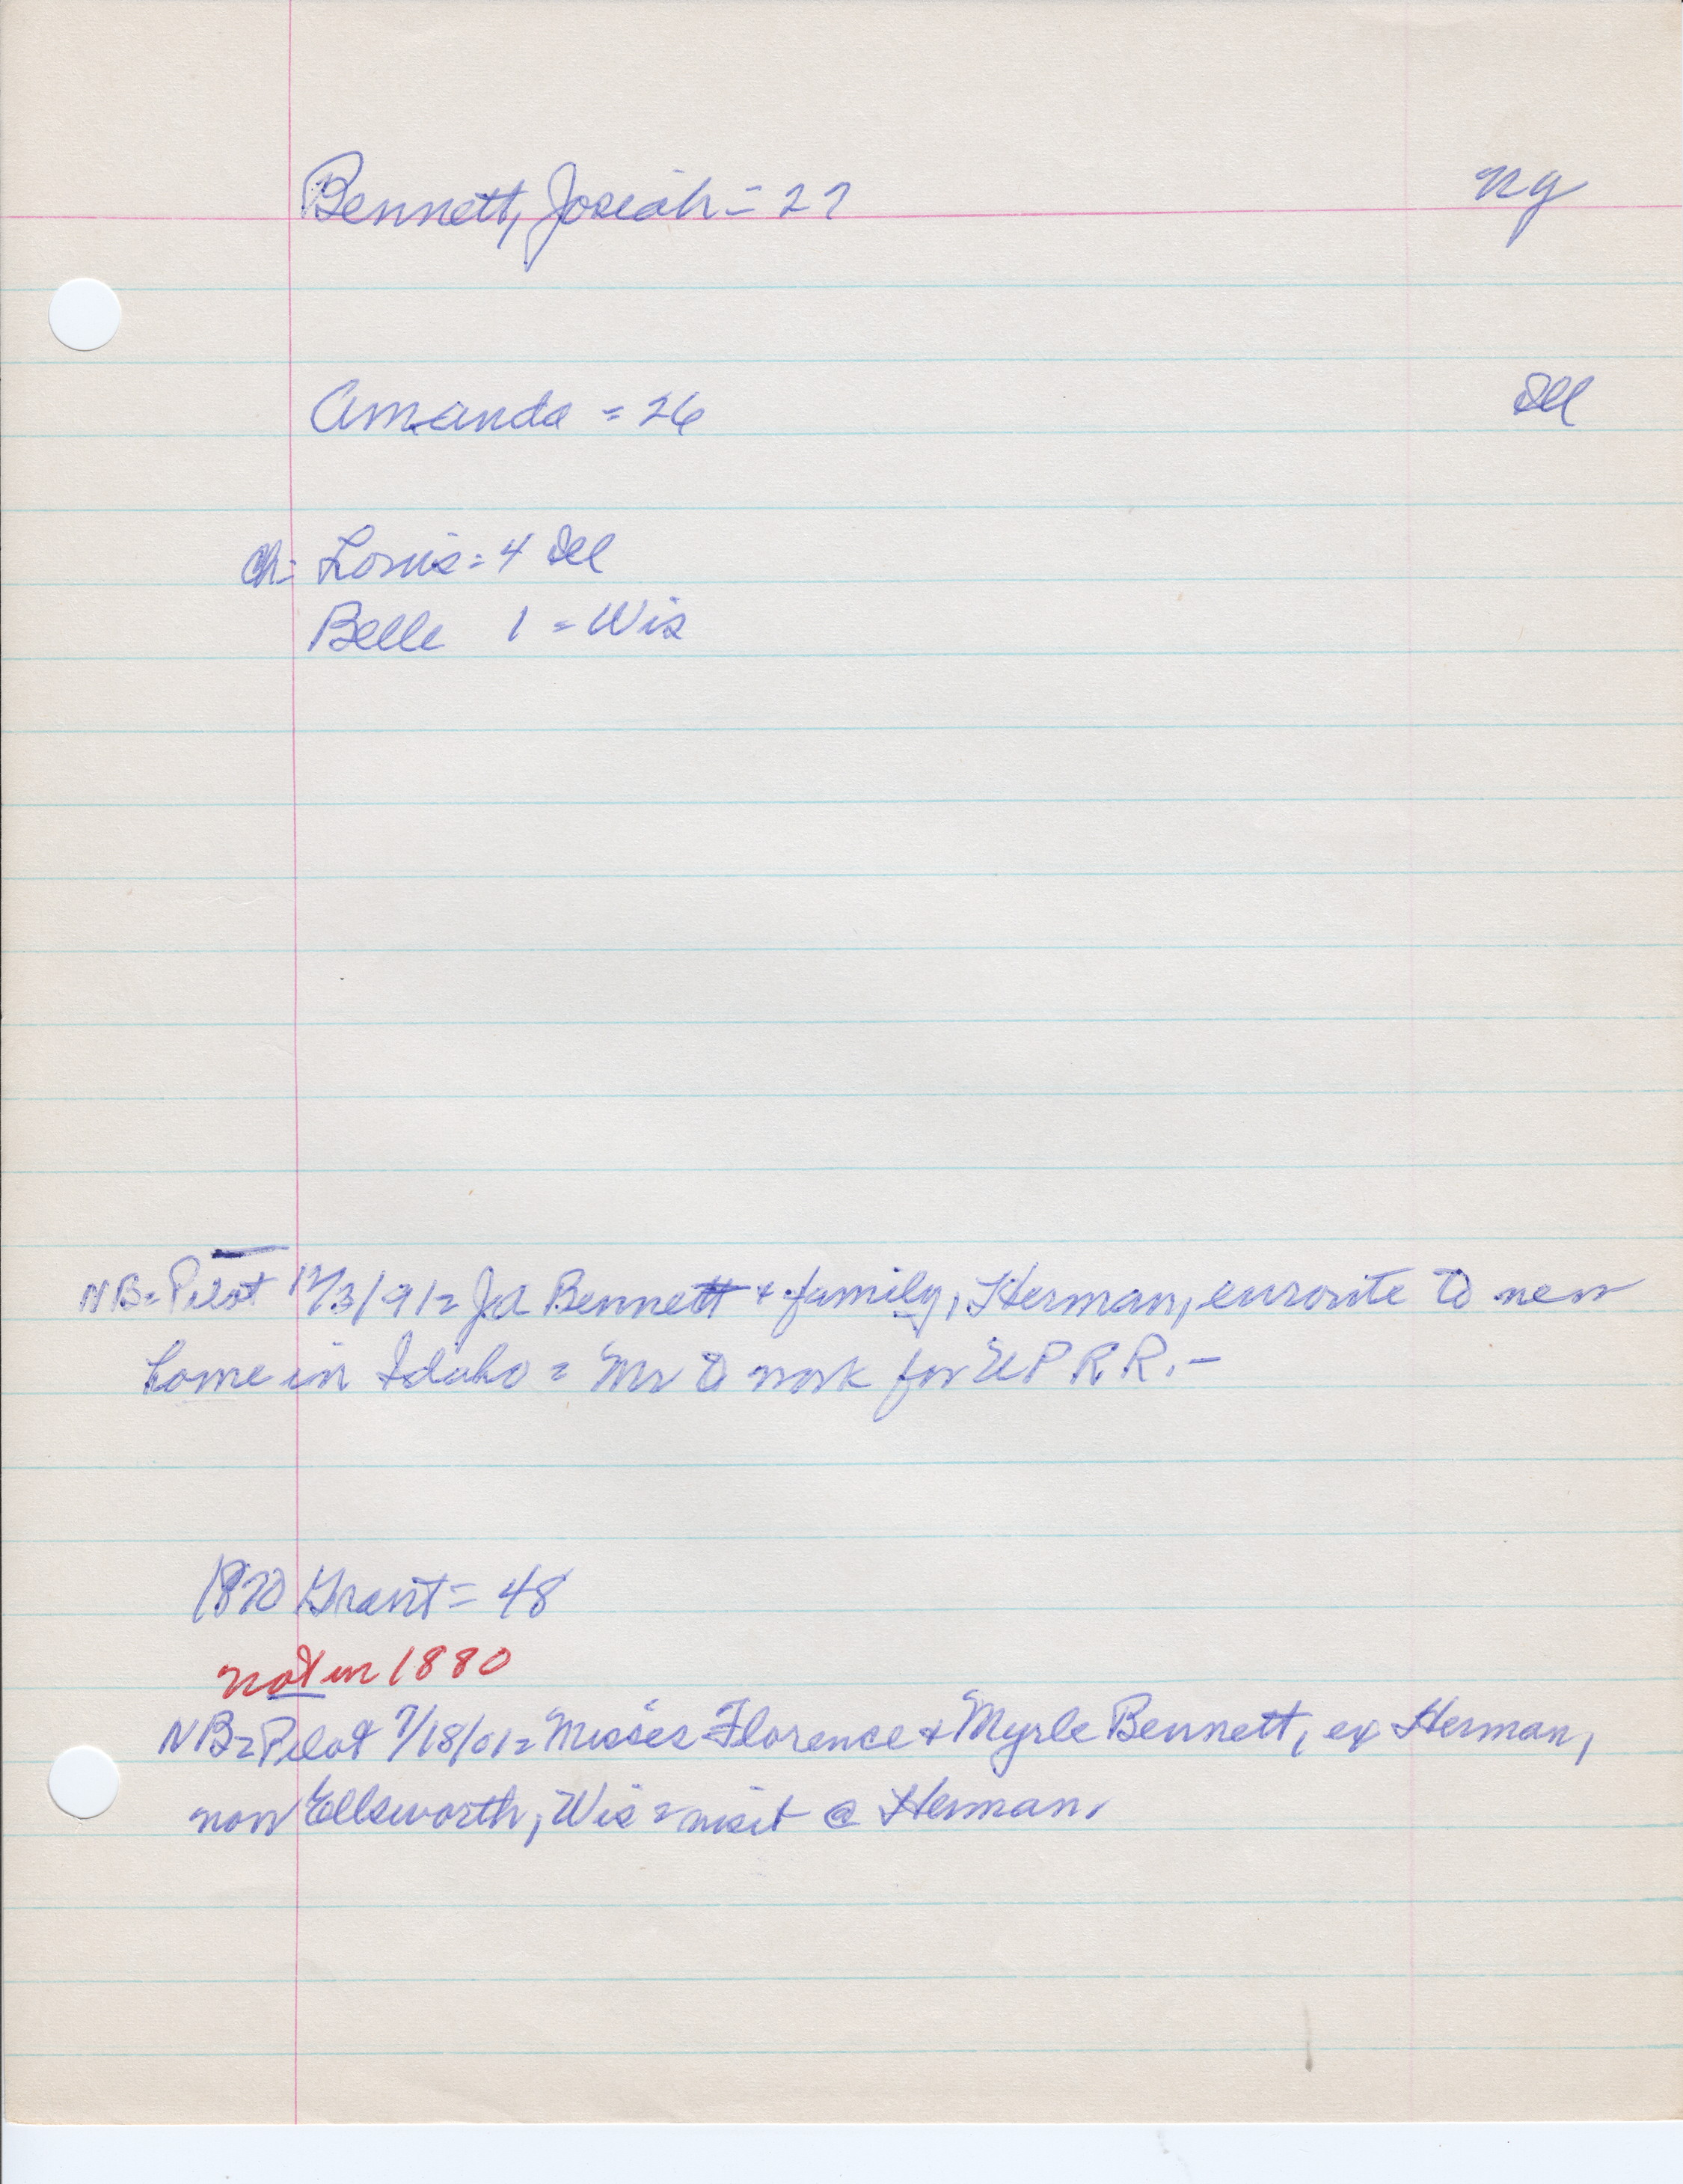 Bennett, Josiah = 27 NY
Amanda = 26 Ill
Ch = Louis = 4 Ill
Belle 1 = Wis
NB = Pilot 12/3/91 = Jd Bennett + family, Herman, enroute to new
home in Idaho = Mr to work for UPRR. -
1870 Grant = 48
not in 1880
NB = Pilot 7/18/01 = Misses Florence + Myrle Bennett, ex Herman,
now Ellsworth, Wis = visit @ Herman.